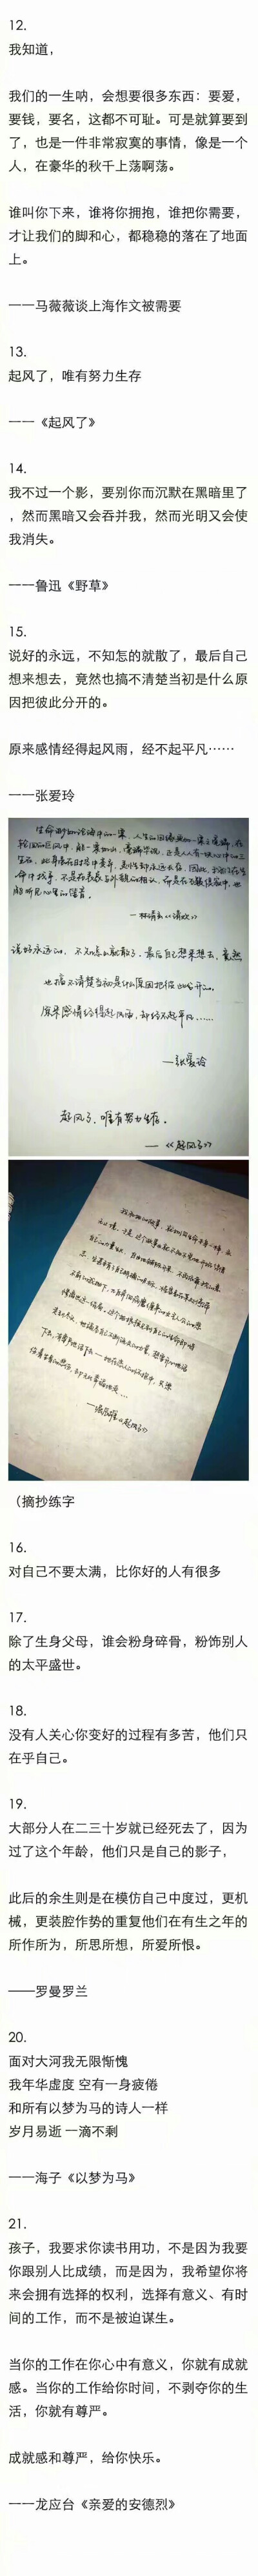 12.
我知道，
我们的一生呐，会想要很多东西：要爱，
要钱，要名，这都不可耻。可是就算要到
了，也是一件非常寂寞的事情，像是一个
人，在豪华的秋千上荡啊荡。
谁叫你下来，谁将你拥抱，谁把你需要，
才让我们的脚和心，都稳稳的落在了地面
上。
——马薇薇谈上海作文被需要
13.
起风了，唯有努力生存
——《起风了》
14.
我不过一个影，要别你而沉默在黑暗里了
，然而黑暗又会吞并我，然而光明又会使
我消失。
——鲁迅《野草》
15.
说好的永远，不知怎的就散了，最后自己
想来想去，竟然也搞不清楚当初是什么原
因把彼此分开的。
原来感情经得起风雨，经不起平凡……
——张爱玲
说好永远的，不知怎么就散了。最后自己想来想去，竟然
也搞不清楚当初是什么原因把彼此分开的。
原来感情经得起风雨，却经不起平凡……
—张爱玲
起风了，唯有努力生存。
—《起风了》
（摘抄练字
16.
对自己不要太满，比你好的人有很多
17.
除了生身父母，谁会粉身碎骨，粉饰别人
的太平盛世。
18.
没有人关心你变好的过程有多苦，他们只
在乎自己。
19.
大部分人在二三十岁就已经死去了，因为
过了这个年龄，他们只是自己的影子，
此后的余生则是在模仿自己中度过，更机
械，更装腔作势的重复他们在有生之年的
所作所为，所思所想，所爱所恨。
——罗曼罗兰
20.
面对大河我无限惭愧
我年华虚度 空有一身疲倦
和所有以梦为马的诗人一样
岁月易逝 一滴不剩
——海子《以梦为马》
21.
孩子，我要求你读书用功，不是因为我要
你跟别人比成绩，而是因为，我希望你将
来会拥有选择的权利，选择有意义、有时
间的工作，而不是被迫谋生。
当你的工作在你心中有意义，你就有成就
感。当你的工作给你时间，不剥夺你的生
活，你就有尊严。
成就感和尊严，给你快乐。
——龙应台《亲爱的安德烈》